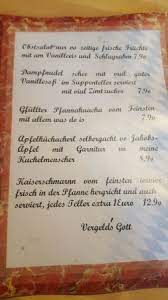 Obstsalat nur so zeitige frische Früchte
mit am Vanilleeis und Schlagrahm 7.90
Dampfnudel scher mit viel guter
Vanillesoß im Suppenteller serviert
mit viel Zimtzucker 7.90
Gfüllter Pfannakuacha vom Feinsten
mit allem was da is 7.90
Apfelküchacherl selbergacht vo Jakobs-
Äpfel mit Garnitur vo meine
Kachelmenscher 8.90
Kaiserschmarrn vom feinsten
frisch in der Pfanne hergricht und auch
serviert, jedes Teller extra 1Euro 12.90
Vergelds Gott